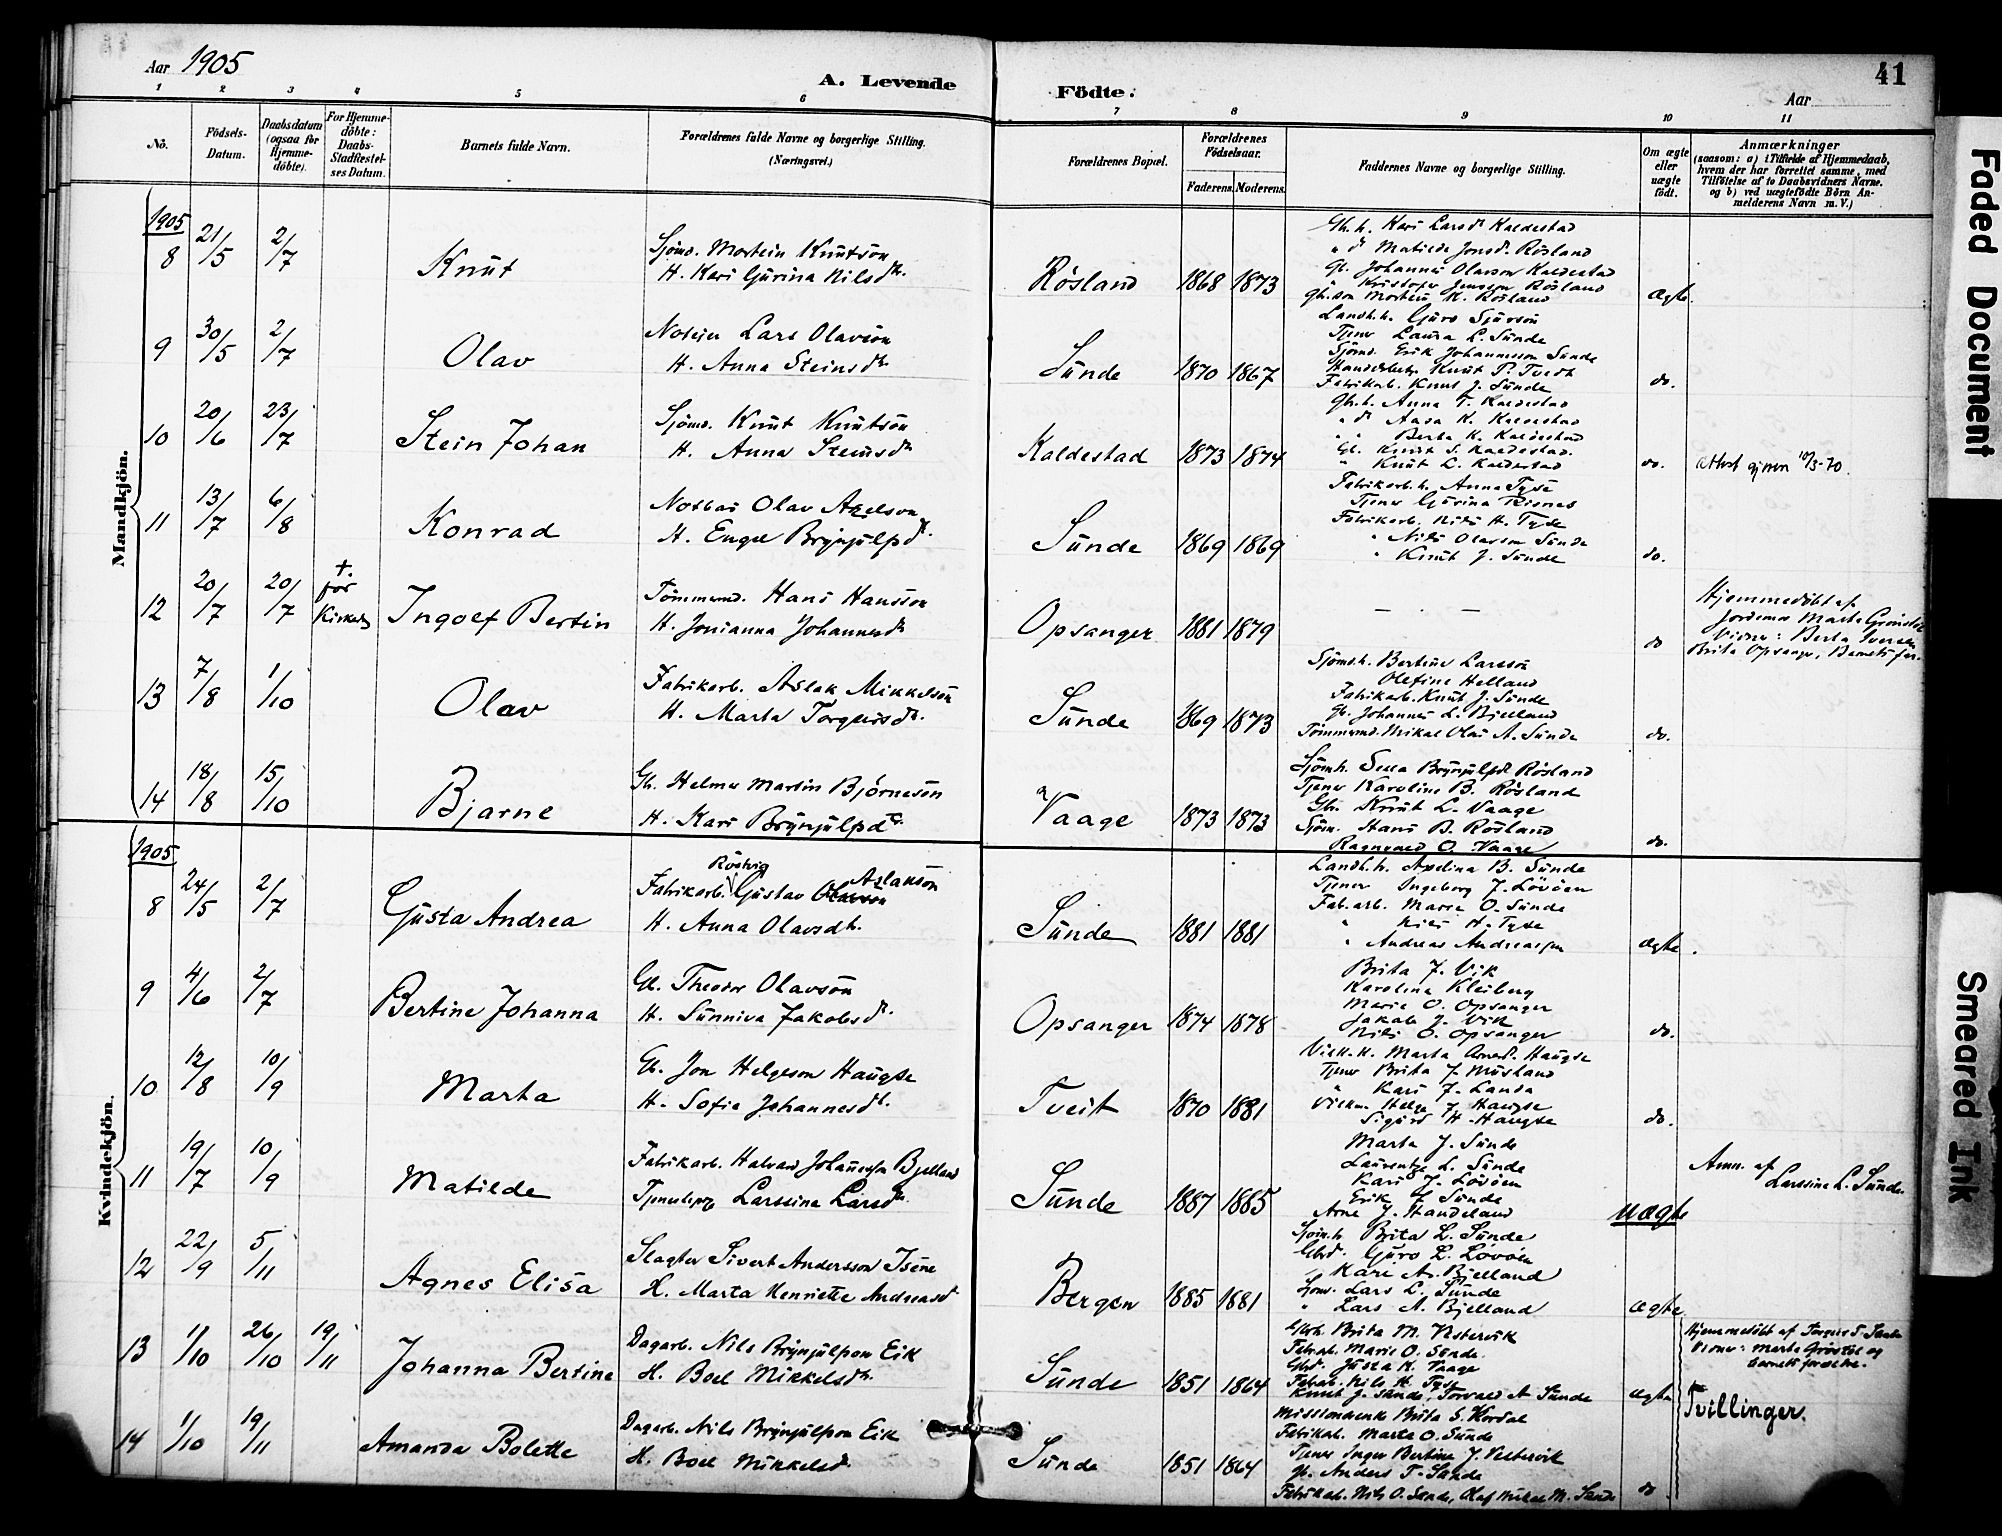 Aar 1905
A. Levende Födte.
41
Aar
1 2 3 4 5 6 7 8 9 10 11
Nö.
Födsels-Datum.
Daabsdatum (ogsaa for Hjemmedöbte).
For Hjemmedöbte: Daabs-Stadfæstelses Datum.
Barnets fulde Navn.
Forældrenes fulde Navne og borgerlige Stilling. (Næringsvei.)
Forældrenes Bopæl.
Forældrenes Födselsaar.
Faderens. Moderens.
Faddernes Navne og borgerlige Stilling.
Om ægte eller uægte födt.
Anmærkninger
(saasom: a) i Tilfælde af Hjemmedaab, hvem der har forrettet samme, med Tilföielse af to Daabsvidners Navne. og b) ved uægtefödte Börn Anmelderens Navn m. V.)
Mandkjön.
1905
8 21/5 2/7 Knut
Sjömd. Mortein Knutsön
H. Kari Gurina Nilsdtr.
Rösland 1868 1873
Gbh. Kari Larsdtr Kaldestad
" dtr Matilde Jonsdtr. Rösland
Gb. Johannes Olavson Kaldestad
Gbson Mortein K. Rösland
Ægte.
9 30/5 2/7 Olav
Lars Olavsön
H. Anna Steinsdtr
Sunde 1870 1867
Guro Sjursön
Tjener Laura L. Sunde
Sjömd. Erik Johannesson Sunde
Knut P. Tvedt
Fabrikarb. Knut J. Sunde
do.
10 20/6 23/7 Stein Johan
Sjömd. Knut Knutsön
H. Anna Steinsdtr
Kaldestad 1873 1874
Gbh. Anna T. Kaldestad
" dtr Aasa K. Kaldestad
" " Berta K. Kaldestad
Gb. Knut S. Kaldestad.
" Knut L. Kaldestad
do.
Attest given 10/3-70.
11 13/7 6/8 Konrad
Olav Axelson
H. Engel Brynjulfsdtr.
Sunde 1869 1869
Fabrikarb.h. Anna Tyse
Tjener Gurina
Fabrikarb. Nils H. Tyse
" Nils Olavson Sunde
" Knut J. Sunde
do.
12 20/7 20/7 +. før Kirken
Ingolf Bertin
Tömmermd. Hans Hansson
H. Jonianna Johannesdtr
Opsanger 1881 1879
— — —
do
Hjemmedöbt af
Jordemor Marta Grönstöl
Vidner: Berta Iversen
Brita Opsanger, Barnets far.
13 7/8 1/10 Olav
Fabrikarb. Aslak Mikkelsön
H. Marta Torgeirsdtr.
Sunde 1869 1873
Sjömdh. Bertine Larsson
Olefine Helland
Fabrikarb. Knut J. Sunde
Gb. Johannes L. Bjelland
Tömmermd. Mikal Olai A. Sunde
do.
14 18/8 15/10 Bjarne
Gb. Helmer Martin Björnesön
H. Kari Brynjulfsdtr.
Vaage 1873 1873
Sjömh. Sena Brynjulfsdtr Rösland
Tjener Karoline B. Rösland
Gb. Knut L. Vaage
Sjöm. Hans B. Rösland
Ragnvald O. Vaage
do.
Kvindekjön.
1905
8 24/5 2/7 Gusta Andrea
Fabrikarb. Gustav Olavson Aslakson
H. Anna Olavsdtr.
Sunde 1881 1881
Landh.h. Axelina B. Sunde
Tjener Ingeborg J. Lövöen
Fab.arb. Marta O. Sunde
" Nils H. Tyse
" Andreas Andreassen
ægte.
9 4/6 2/7 Bertine Johanna
Gb. Theodor Olavsön
H. Sunniva Jakobsdtr.
Opsanger 1874 1878
Brita J. Vik
Karolina Kleiberg
Marie O. Opsanger
Jakob J. Vik
Nils O. Opsanger
do.
10 12/8 10/9 Marta
Gb. Jon Helgeson Haugse
H. Sofie Johannesdtr.
Tveit 1870 1881
Marta Arnesd. Haugse
Tjener Brita J. Musland
" Kari J. Landa
Helge J. Haugse
Sigurd H. Haugse
do.
11 19/7 10/9 Matilde
Fabrikarb. Halvard Johannessen Bjelland
Tjenestepg Larssine Larsdtr.
Sunde 1887 1885
Marta J. Sunde
Laurentze L. Sunde
Kari J. Lövöen
Erik J. Sunde
Arne J. Handeland
uægte
Anm. af
Larssine L. Sunde.
12 22/9 5/11 Agnes Elisa
Slagter Sivert Anderssen Isene
H. Marta Henriette Andreasdtr
Bergen 1885 1881
Sjömh. Brita L. Sunde
Gbd. Guro L. Lövöen
" Kari A. Bjelland
Sjöm. Lars L. Sunde
" Lars A. Bjelland
ægte
13 1/10 26/10 19/11 Johanna Bertine
Dagarb. Nils Brynjulfson Eik
H. Boel Mikkelsdtr.
Sunde 1851 1864
Gbrh. Brita M. Vestervik
Fabrab. Marie O. Sunde.
Gbd. Gusta K. Vaage
Fabrab. Nils H. Tyse
Knut J. Sunde, Torvald A. Sunde
ægte
Hjemmedöbt af Torgeir T. Sunde
Vidner: Marta Grönstöl og
barnets forældre.
Tvillinger.
14 1/10 19/11 Amanda Bolette
Dagarb. Nils Brynjulfson Eik
H. Boel Mikkelsd.
Sunde 1851 1864
Brita S. Hordal
Fabrikab. Marta O. Sunde
Tjener Inger Bertine J. Vestervik
Gb. Anders T. Sunde
Fabrikab. Nils O. Sunde, Olaf Mikal M. Sunde
do.
Faded Document
Smeared Ink